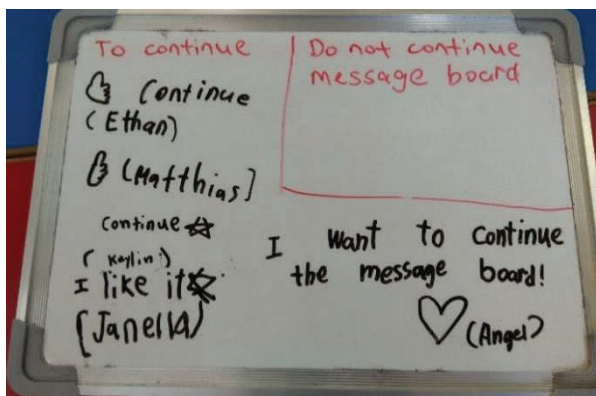 To continue
Continue
(Ethan)
(Matthias)
continue
(Kaylin)
I like it
(Janella)
Do not continue
message board
I want to continue
the message board!
(Angel)